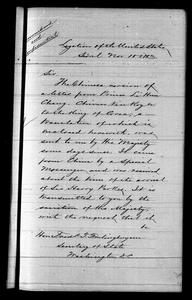 Legation of the United States
Seoul Nov. 15 1882
Sir
The Chinese version of
a letter from Prince Li Hung
Chang, Chinese Viceroy &
including of Corea, a
translation of which is
enclosed herewith, was
sent to me by His Majesty
some days since. It came
from China by a Special
Messenger and was received
about the time of the arrival
of Sir Harry Parkes. It is
transmitted to you by the
sanction of His Majesty
with the request that it
be
Hon. Fred. T. Frelinghuysen
Secretary of State
Washington D.C.